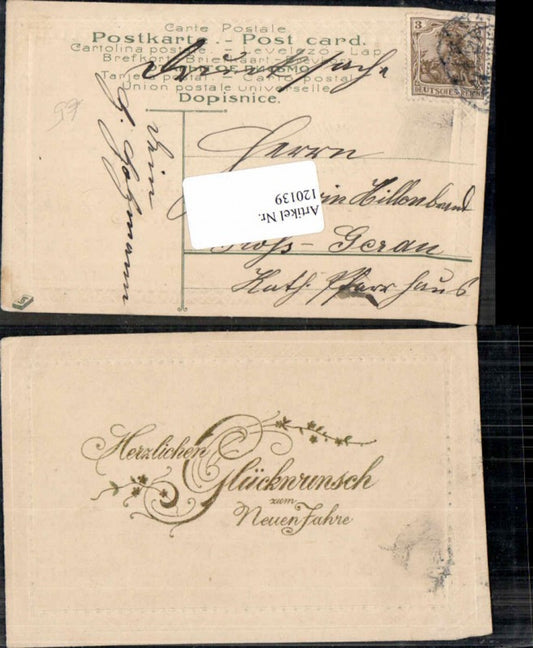 Carte Postale
Postkarte. - Post card.
Cartolina postale. - Levelezo - Lap
Brefkort - Briefkaart - Brevkort
Union postale universelle
Dopisnice.
3
DEUTSCHES REICH
Drucksache
Herrn
Hillenbrand
Groß-Gerau
Kath. Pfarrhaus
Artikel Nr.
120139
Herzlichen
Glückwunsch
zum
Neuen Jahre